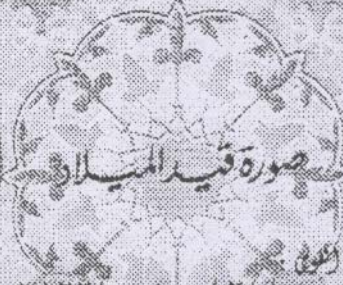 صورة قيد الميلاد